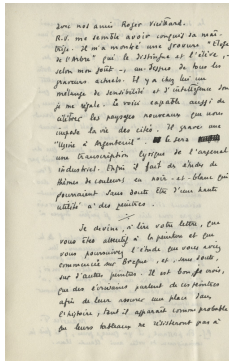 avec nos amis Roger Vieillard.
R.V. me semble avoir conquis sa maî-
trise. Il m'a montré une gravure "Eloge
de l'Arbre" qui le distingue et l'élève,
selon mon goût -, au dessus de tous les
graveurs actuels. Il y a chez lui un
mélange de sensibilité et d'intelligence dont
je me régale. Le voici capable aussi de
célébrer les paysages nouveaux que nous
impose la vie des cités. Il grave une
"Usine à Argenteuil". sera
une transcription lyrique de l'arsenal
industriel. Enfin il fait des études de
thèmes de couleurs en noir et blanc qui
pourraient sans doute être d'une haute
utilité à des peintres.
Je devine, à lire votre lettre, que
vous êtes attentif à la peinture et que
vous poursuivez l'étude que vous aviez
commencée sur Braque, et, sans doute,
sur d'autres peintres. Il est bon, je crois,
que des écrivains parlent de ces peintres
afin de leur assurer une place dans
l'histoire, tant il apparaît comme probable
que leurs tableaux ne résisteront pas à